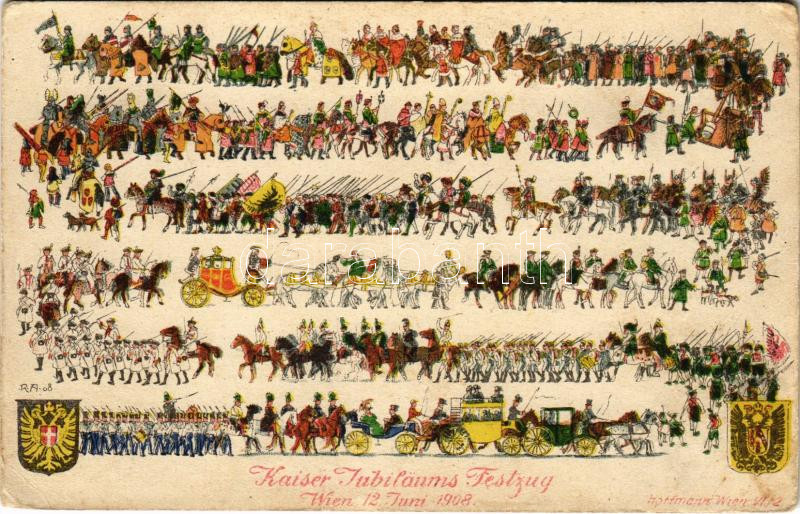 darabanth
R.A. 08
Kaiser Jubiläums Festzug
Wien 12. Juni 1908.
Hoffmann Wien VI/2